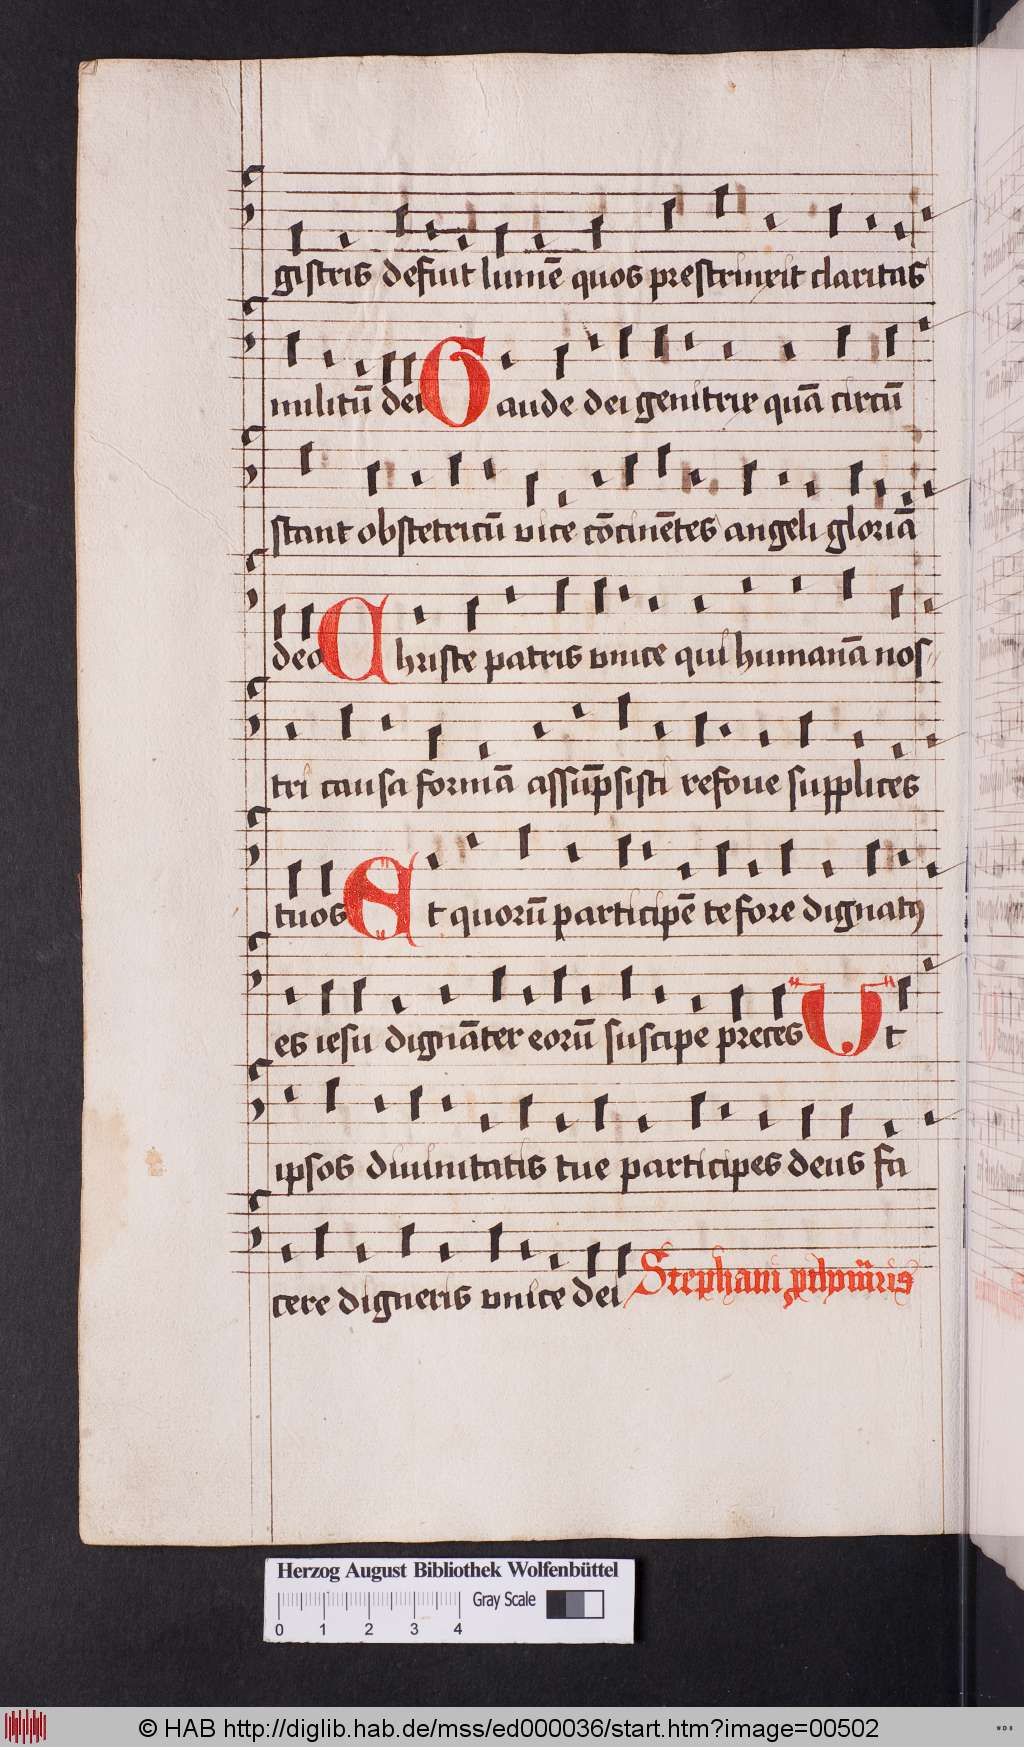 gistris defuit lumē quos prestrinxit claritas
militū dei Gaude dei genitrix quā circū
stant obstetricū vice cōcinētes angeli gloriā
deo Christe patris vnice qui humanā nos
tri causa formā assūpsisti refoue supplices
tuos Et quorū participē te fore dignatꝰ
es iesu dignāter eorū suscipe preces Vt
ipsos diuinitatis tue participes deus fa
cere digneris vnice dei Stephani
Herzog August Bibliothek Wolfenbüttel
Gray Scale
0 1 2 3 4
© HAB http://diglib.hab.de/mss/ed000036/start.htm?image=00502